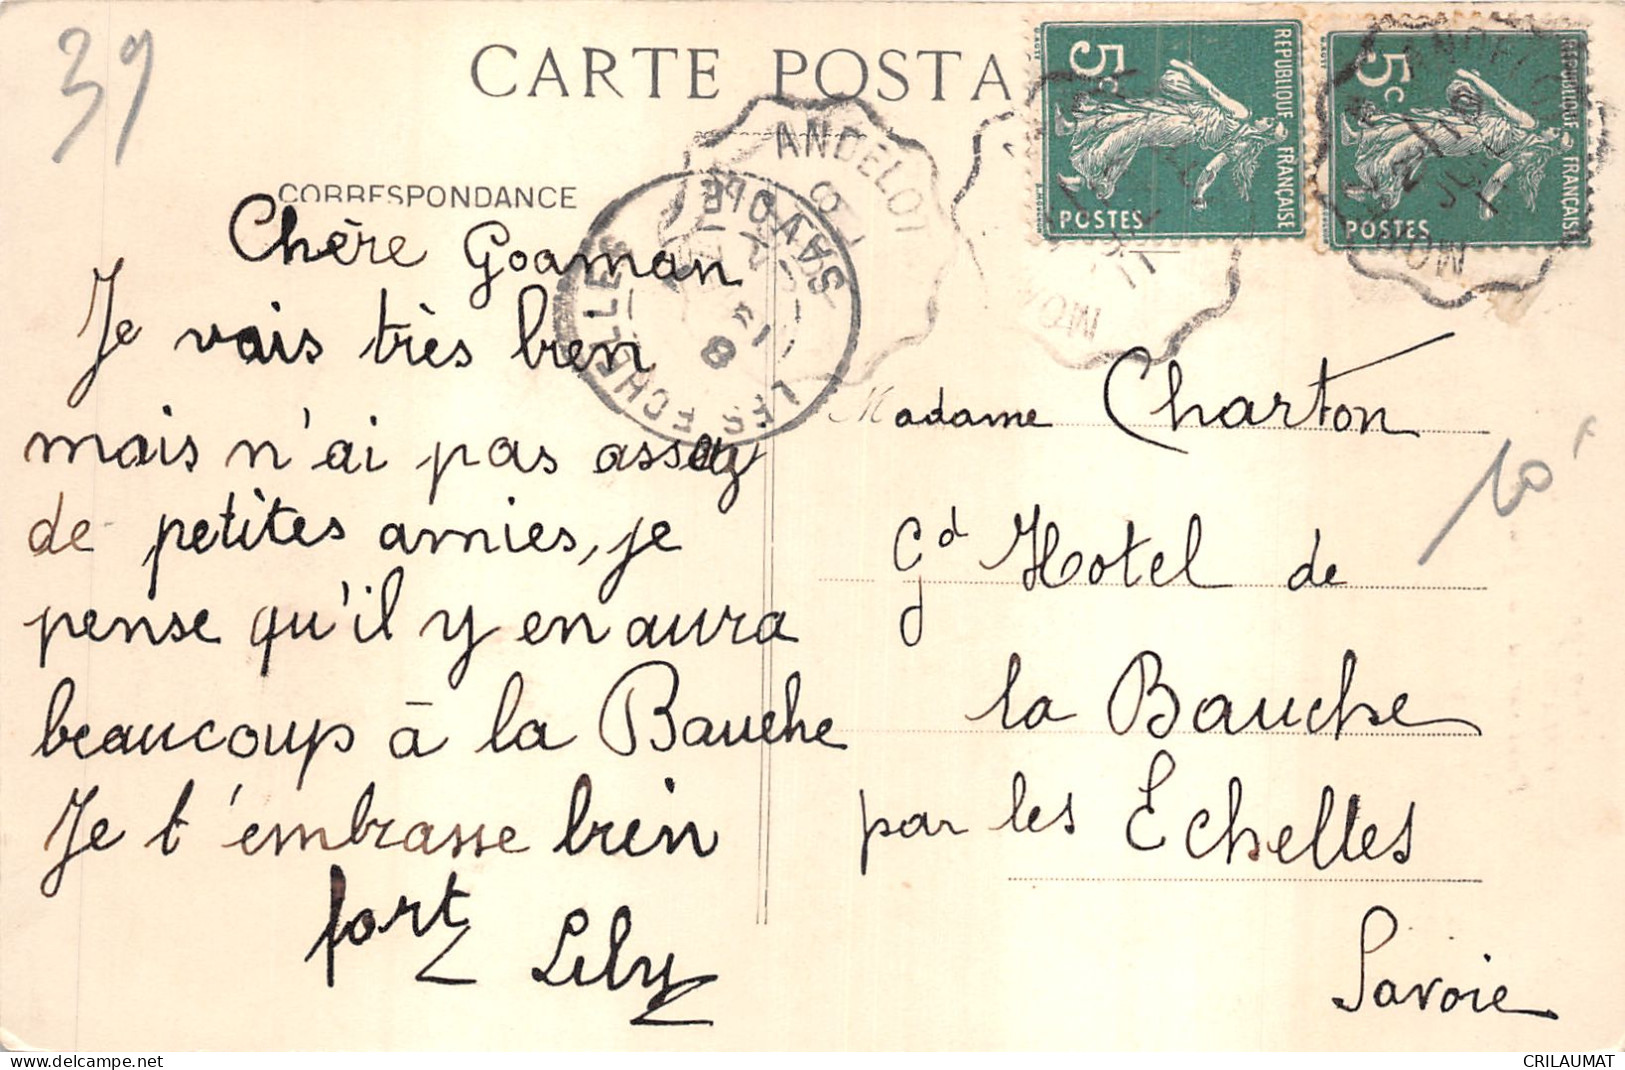 39
CARTE POSTA
CORRESPONDANCE
Chère Goaman
Je vais très bien
mais n'ai pas assez
de petites amies, je
pense qu'il y en aura
beaucoup à la Bauche
Je t'embrasse bien
fort
Lily
ANDELOT
LES ECHELLES
SAVOIE
5c
POSTES
REPUBLIQUE FRANÇAISE
5c
POSTES
REPUBLIQUE FRANÇAISE
ANDELOT
Madame Charton
Gd Hotel de
la Bauche
par les Echelles
Savoie
10F
delcampe.net
CRILAUMAT